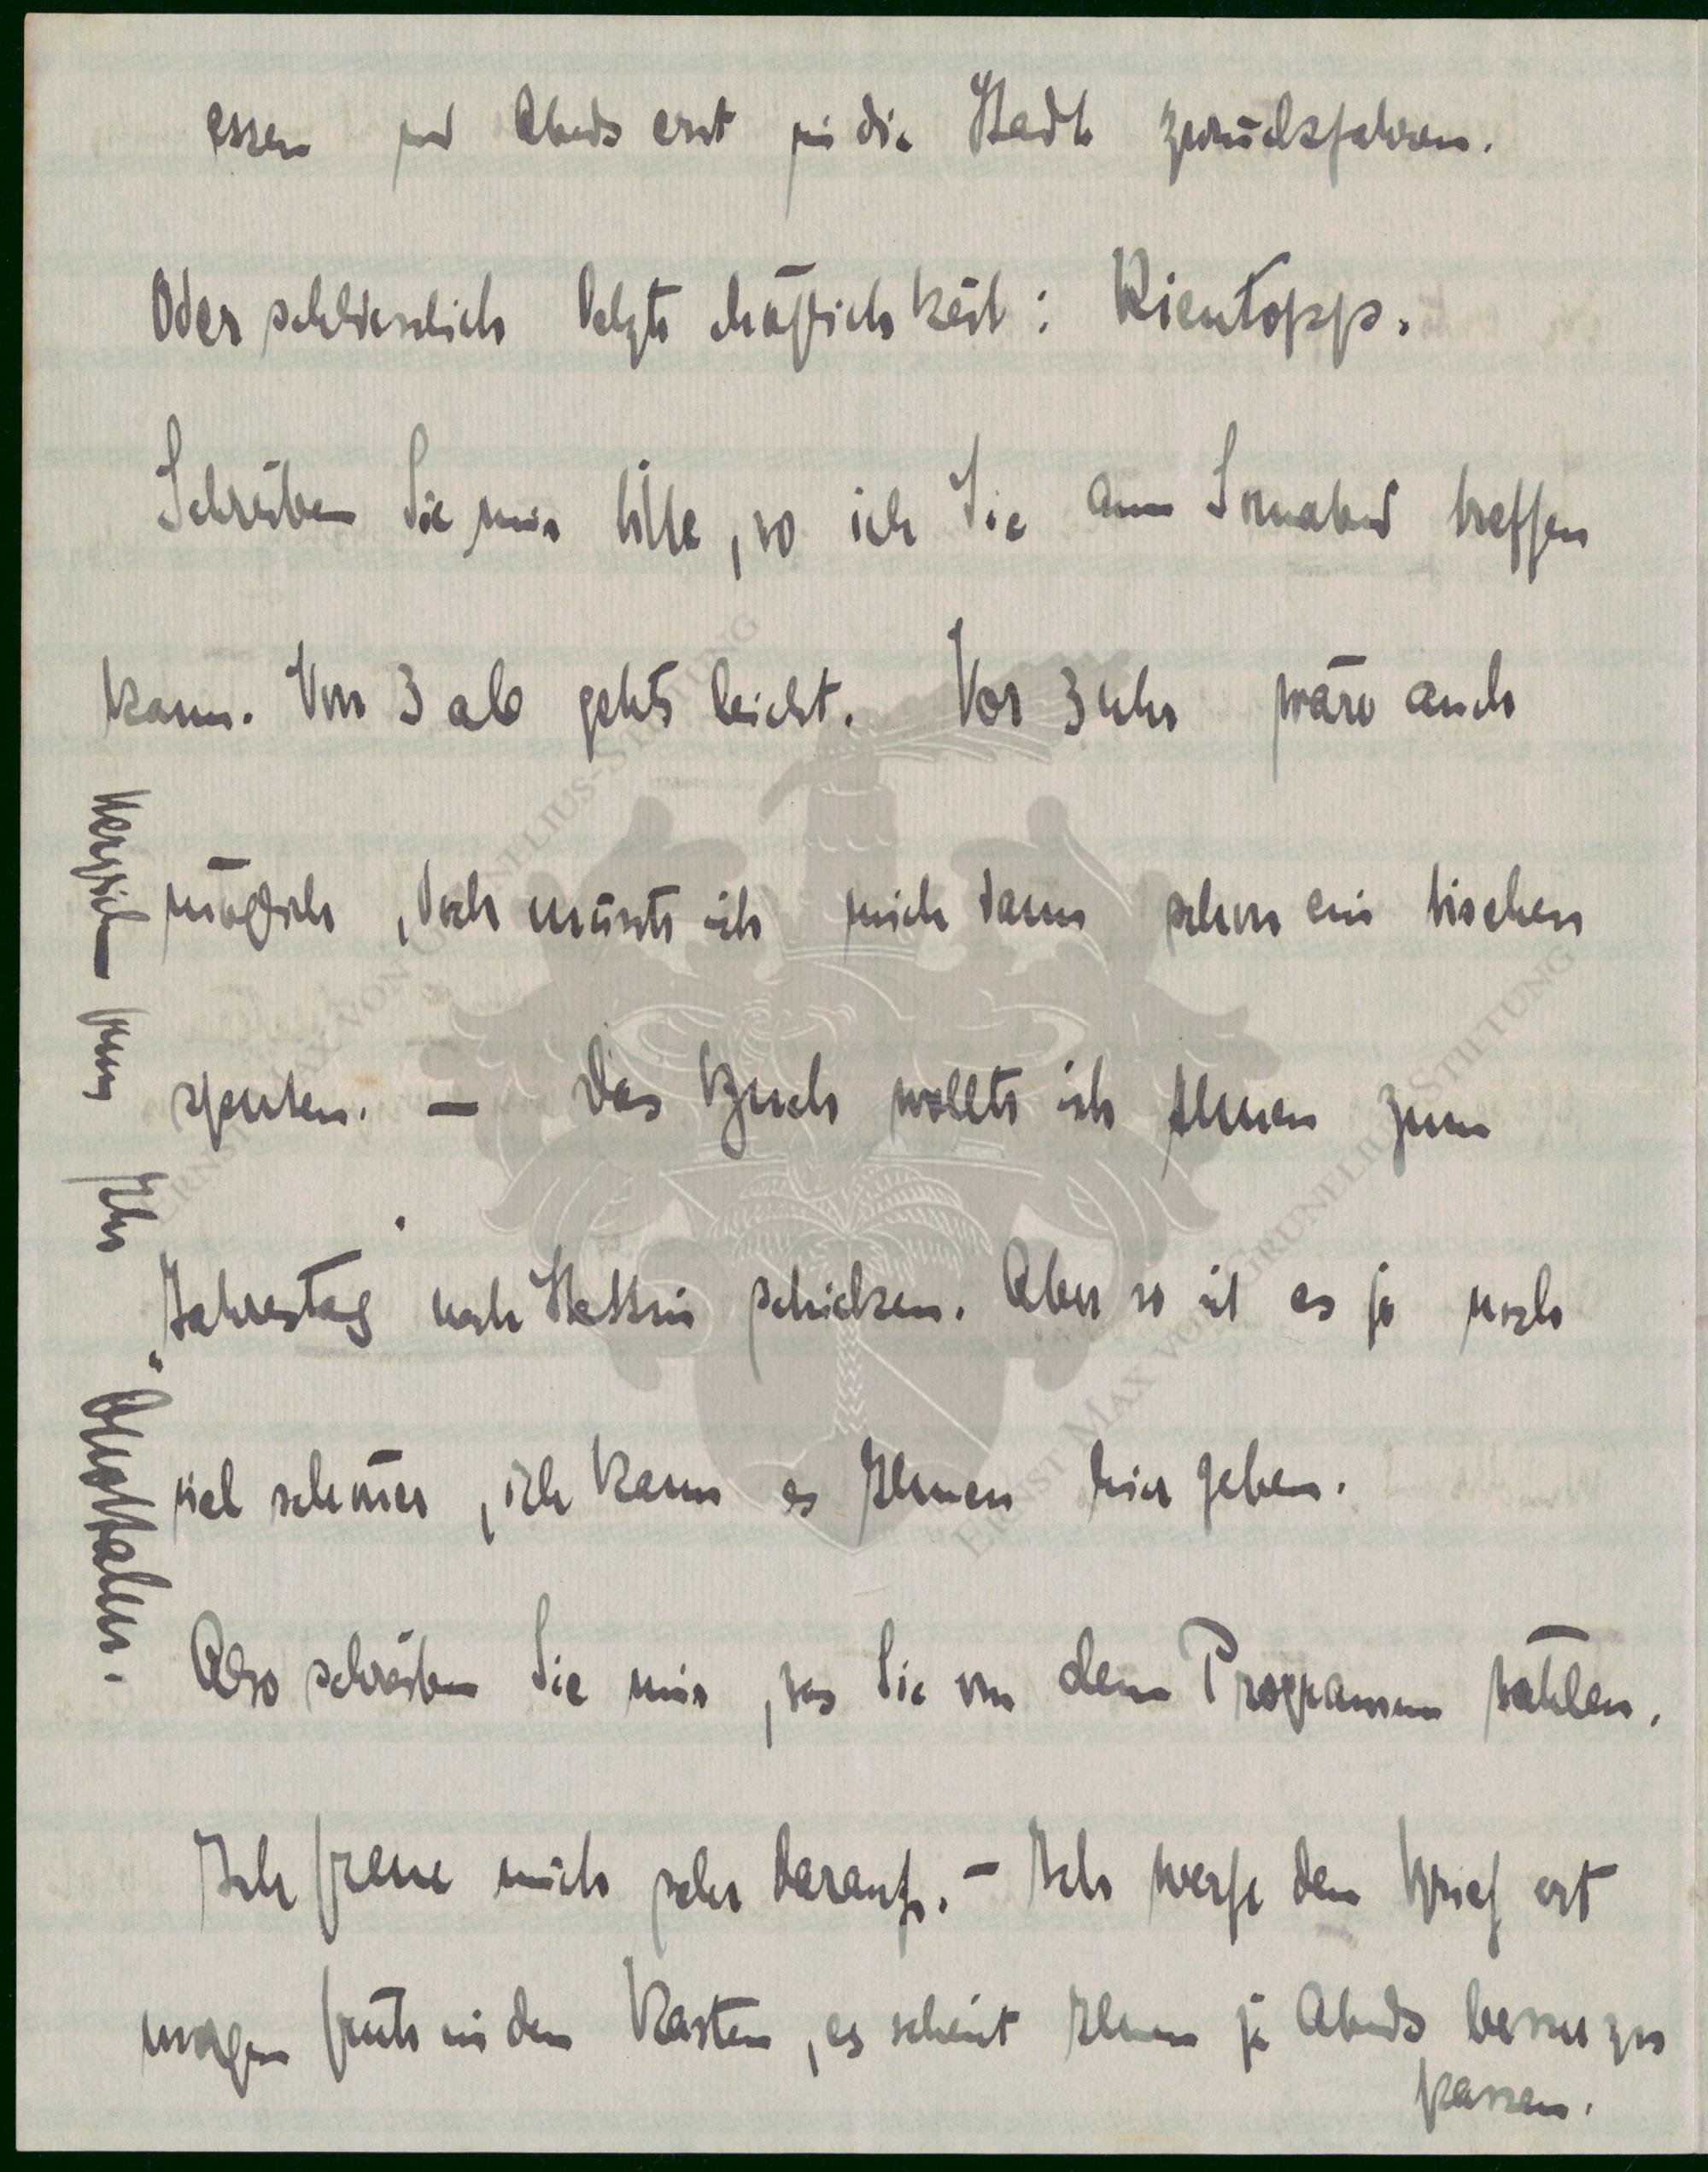 essen und Abends erst in die Stadt zurückfahren.
Oder schliesslich letzte Möglichkeit: Kientopp.
Schreiben Sie mir bitte, wo ich Sie am Sonnabend treffen
kann. Von 3 ab gehts leicht. Vor 3 Uhr wäre auch
möglich, doch müsste ich mich dann schon ein bischen
sputen. — Das Buch wollte ich Ihnen zum
"Jahrestag" nach Stettin schicken. Aber so ist es ja noch
viel schöner, ich kann es Ihnen hier geben.
Also schreiben Sie mir, was Sie von dem Programm wählen.
Ich freue mich sehr darauf. – Ich werfe den Brief erst
morgen früh in den Kasten, es scheint Ihnen ja Abends besser zu
passen.
Herzlich Ihr
ERNST MAX VON GRUNELIUS-STIFTUNG
ERNST MAX VON GRUNELIUS-STIFTUNG